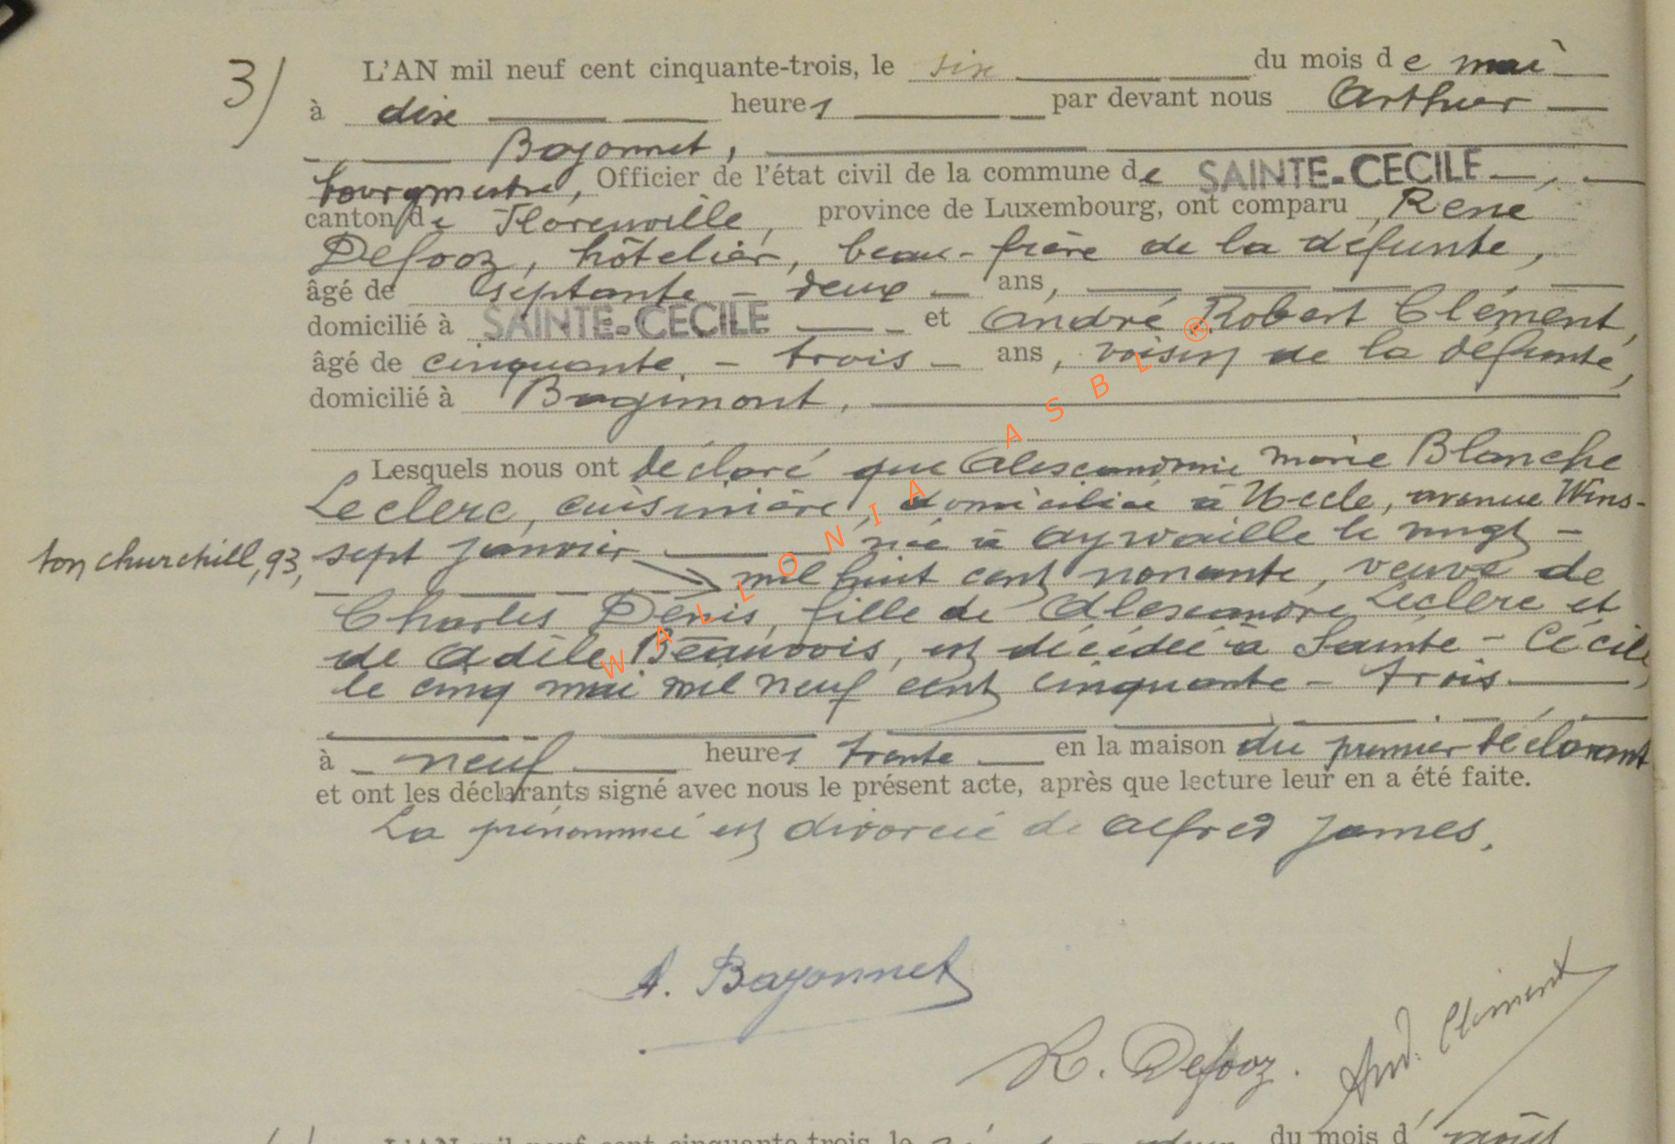 3/ L'AN mil neuf cent cinquante-trois, le six du mois de mai
à dix heures par devant nous Arthur
Bayonnet,
bourgmestre, Officier de l'état civil de la commune de SAINTE-CECILE
canton de Florenville, province de Luxembourg, ont comparu René
Defooz, hôtelier, beau-frère de la défunte,
âgé de septante-deux ans,
domicilié à SAINTE-CECILE et André Robert Clément,
âgé de cinquante-trois ans, voisin de la défunte,
domicilié à Bagimont,
Lesquels nous ont déclaré que Alexandrine Marie Blanche
Leclerc, cuisinière, domiciliée à Uccle, avenue Wins-
ton churchill, 93, sept janvier née à Aywaille le vingt-
mil huit cent nonante, veuve de
Charles Denis, fille de Alexandre Leclerc et
de Adèle Beauvois, est décédée à Sainte-Cécile
le cinq mai mil neuf cent cinquante-trois,
à neuf heures trente en la maison du premier déclarant
et ont les déclarants signé avec nous le présent acte, après que lecture leur en a été faite.
La prénommée est divorcée de Alfred James.
A. Bayonnet
R. Defooz.
And. Clément
L'AN mil neuf cent cinquante-trois le du mois d'août
WALLONIA ASBL ®